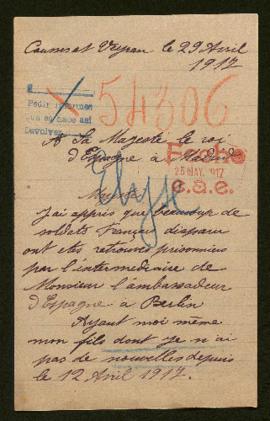 Caumont Veyran le 29 Avril
1917
54306
Pedir informes
que se hace así
Devolver
A Sa Majesté le roi
d'Espagne à Madrid
Fecha
25 MAY. 917
c.a.e.
J'ai appris que beaucoup de
soldats Français disparu
ont etes retrouvés prisonniers
par l'intermediaire de
Monsieur l'ambassadeur
d'Espagne à Berlin
Ayant moi même
mon fils dont je n'ai
pas de nouvelles depuis
le 12 Avril 1917.